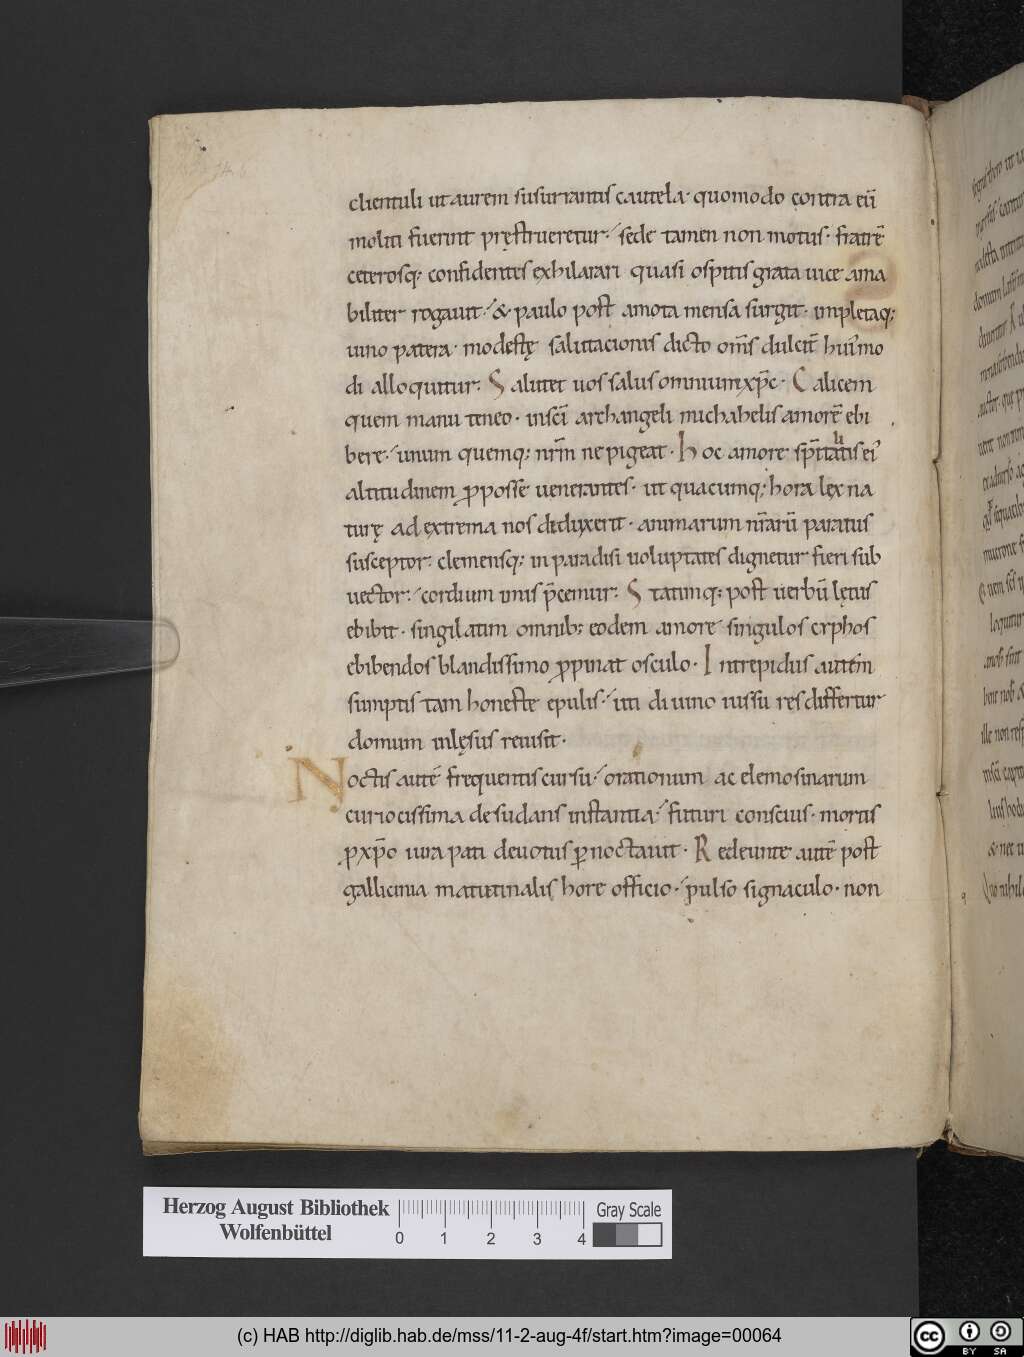 clientuli ut aurem susurrantis cautela· quomodo contra eū
moliti fuerint pręstrueretur· sede tamen non motus· fratrē
ceterosq; confidentes exhilarari quasi ospitis grata uice ama
biliter rogauit· & paulo post amota mensa surgit· impletaq;
uino patera· modestę salutacionis dicto om̄s dulcit̄ huiꝰmo
di alloquitur· Salutet uos salus omnium xp̄c· Calicem
quem manu teneo· in sc̄i archangeli michahelis amorē ebi
bere· unum quemq; nr̄m ne pigeat· Hoc amore sp̄italitatis eiꝰ
altitudinem ꝓ posse uenerantes· ut quacumq; hora lex na
turę ad extrema nos deduxerit· animarum nr̄arū paratus
susceptor· clemensq; in paradisi uoluptates dignetur fieri sub
uector· cordium imis p̄cemur· Statimq; post uerbū lętus
ebibit· singilatim omnib; eodem amore singulos cyphos
ebibendos blandissimo ꝓpinat osculo· Intrepidus autem
sumptis tam honeste epulis· uti diuino iussu res differtur
domum inlęsus reuisit·
Noctis autē frequentis cursu· orationum ac elemosinarum
curiocissima desudans instantia· futuri conscius· mortis
ꝓ xp̄o iura pati deuotus ꝑnoctauit· Redeunte autē post
gallicinia matutinalis hore officio· pulso signaculo· non
Herzog August Bibliothek
Wolfenbüttel
0 1 2 3 4
Gray Scale
(c) HAB http://diglib.hab.de/mss/11-2-aug-4f/start.htm?image=00064
cc BY SA